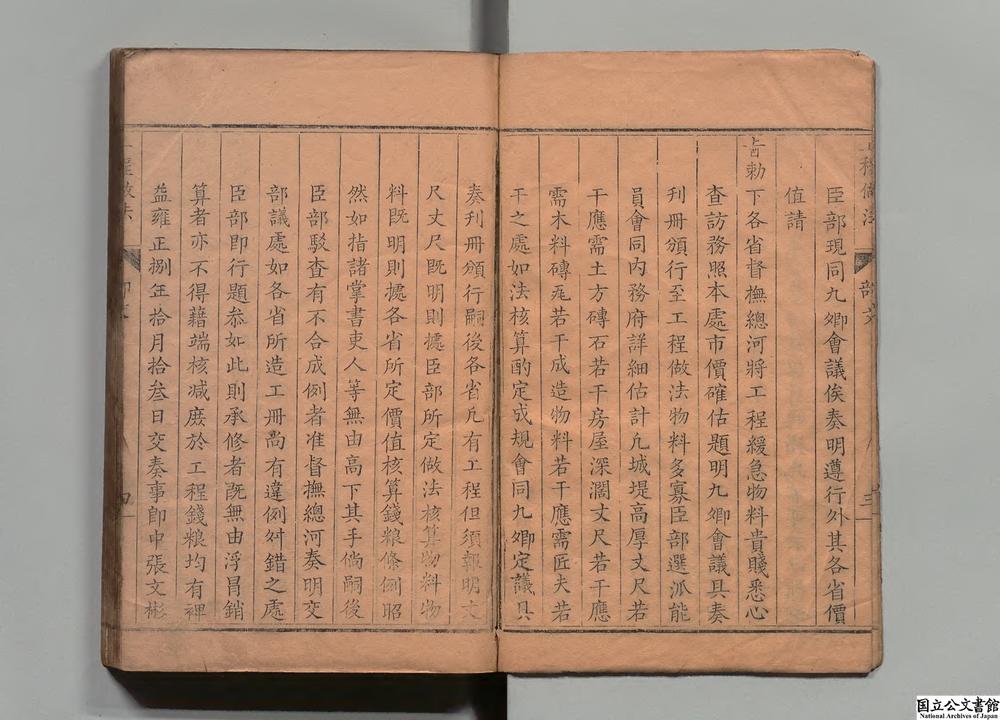 工程做法 部文 三
臣部現同九卿會議俟奏明遵行外其各省價
値請
旨勅下各省督撫總河將工程緩急物料貴賤悉心
查訪務照本處市價確估題明九卿會議具奏
刋册頒行至工程做法物料多寡臣部選派能
員會同內務府詳細估計凢城堤高厚丈尺若
干應需土方磚石若干房屋深濶丈尺若干應
需木料磚瓦若干成造物料若干應需匠夫若
干之處如法核算酌定成規會同九卿定議具
奏刋册頒行嗣後各省凢有工程但須報明丈
尺丈尺旣明則㩀臣部所定做法核算物料物
料旣明則㩀各省所定價值核算錢粮條例昭
然如指諸掌書吏人等無由高下其手倘嗣後
臣部駁查有不合成例者准督撫總河奏明交
部議處如各省所造工册尚有違例舛錯之處
臣部即行題叅如此則承修者旣無由浮冒銷
算者亦不得藉端核减庶於工程錢粮均有裨
益雍正捌年拾月拾叁日交奏事郎中張文彬
工程做法 部文 四
国立公文書館
National Archives of Japan